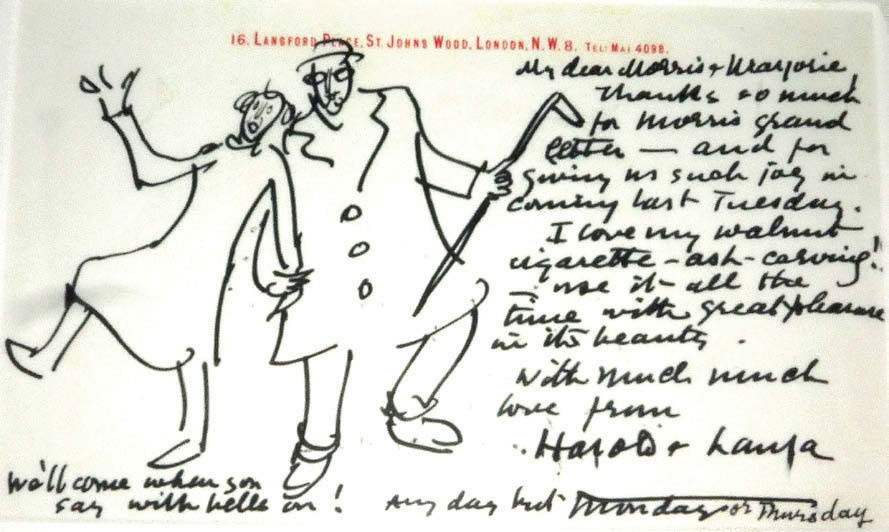 16. LANGFORD PLACE, ST. JOHNS WOOD, LONDON, N.W.8. TEL: MAI 4098.
My dear Morris & Marjorie
Thanks so much
for Morris grand
letter — and for
giving us such joy in
coming last Tuesday.
I love my walnut
cigarette-ash-carving!
use it all the
time with great pleasure
in its beauty.
With much much
love from
Harold & Laura
We'll come when you
say with bells on!
Any day but Monday or Thursday